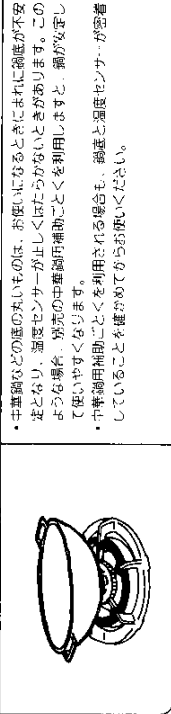 ・中華鍋などの底の丸いものは、お使いになるときにまれに鍋底が不安
定となり、温度センサーが正しくはたらかないときがあります。この
ような場合、別売の中華鍋用補助ごとくを利用しますと、鍋が安定し
て使いやすくなります。
・中華鍋用補助ごとくを利用される場合も、鍋底と温度センサーが密着
していることを確かめてからお使いください。